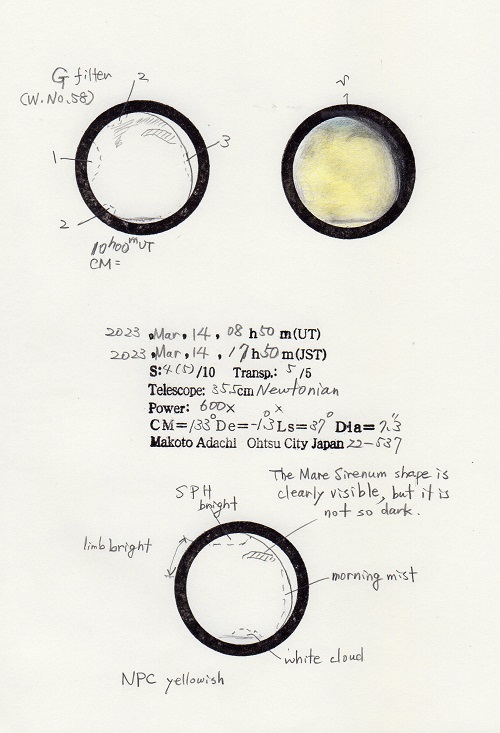 G filter
(W.No.58)
2
1
3
2
10h00mUT
CM=
2023 .Mar. 14 . 08 h 50 m(UT)
2023 .Mar. 14 . 17 h 50 m(JST)
S: 4(5)/10 Transp.: 5 /5
Telescope: 35.5cm Newtonian
Power: 600x x
CM= 133° De= -1.3° Ls= 37° Dia= 7.3"
Makoto Adachi Ohtsu City Japan 22-537
The Mare Sirenum shape is
clearly visible, but it is
not so dark.
SPH
bright
limb bright
morning mist
white cloud
NPC yellowish